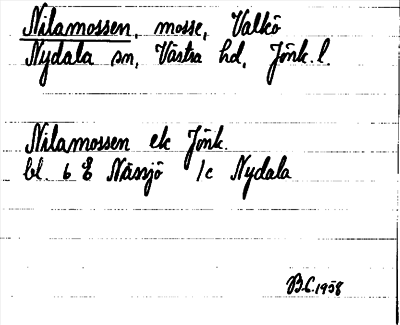 Nilamossen, mosse, Valkö
Nydala sn, Västra hd, Jönk. l.
Nilamossen ek Jönk.
bl. 6 E Nässjö 1c Nydala
B.C. 1958